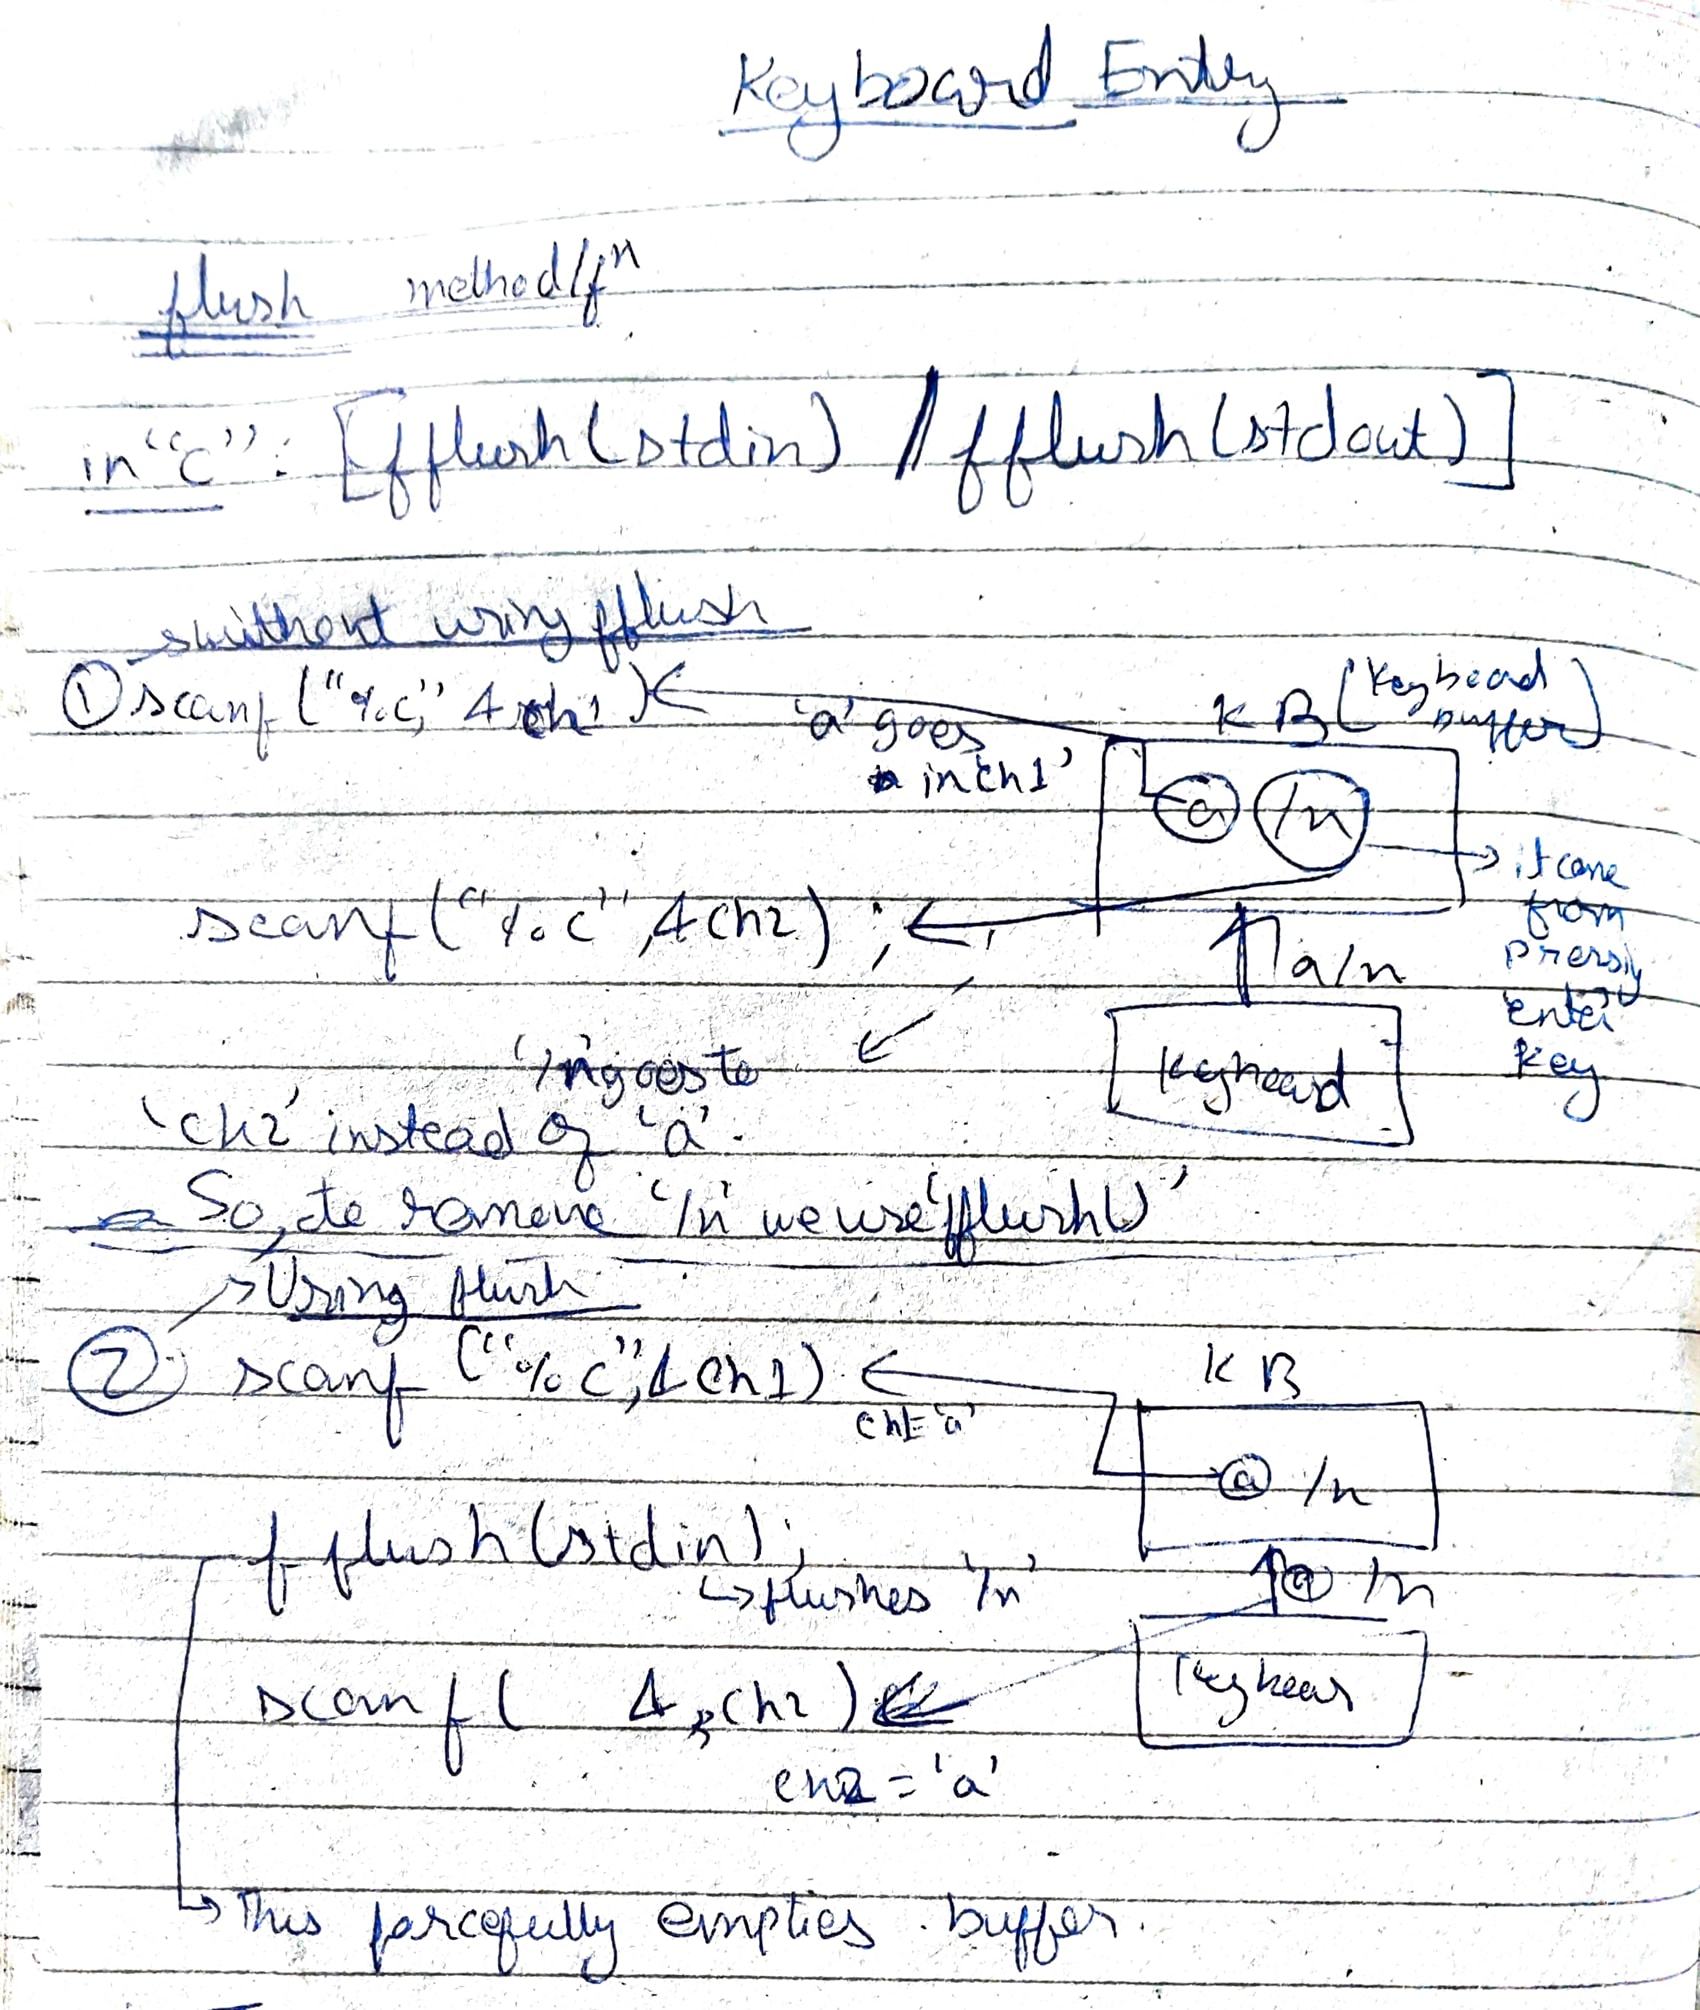 Keyboard Entry
flush method/fⁿ
in "C" : [fflush(stdin) / fflush(stdout)]
without using fflush
① scanf("%c", &ch1)
'a' goes
in 'ch1'
KB (Keyboard
buffer)
a /n
it come
from
pressing
enter
key
scanf("%c", &ch2);
a/n
Keyboard
'/n' goes to
'ch2' instead of 'a'.
So, to remove '/n' we use 'fflush()'
→ Using flush
② scanf("%c", &ch1)
ch1='a'
KB
a /n
fflush(stdin);
↳ flushes '/n'
a /n
scanf( &,ch2)
Keyboar
ch2 = 'a'
↳ This forcefully empties buffer.